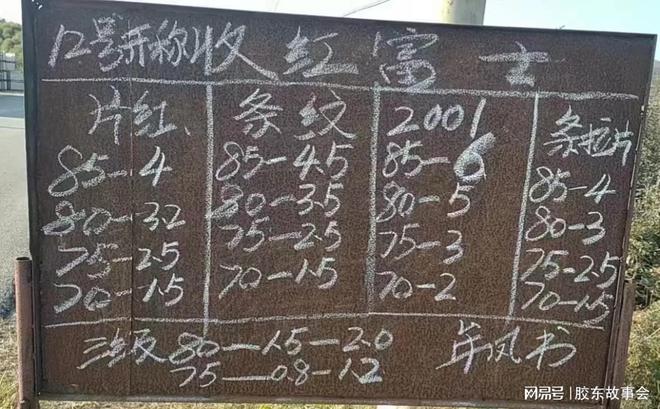 12号开称收红富士
片红、 条纹 2001 条拉片
85-4 85-4.5 85-6 85-4
80-3.2 80-3.5 80-5 80-3
75-2.5 75-2.5 75-3 75-2.5
70-1.5 70-1.5 70-2 70-1.5
三级反80-1.5-2.0
75-0.8-1.2
年凤书
网易号 | 胶东故事会